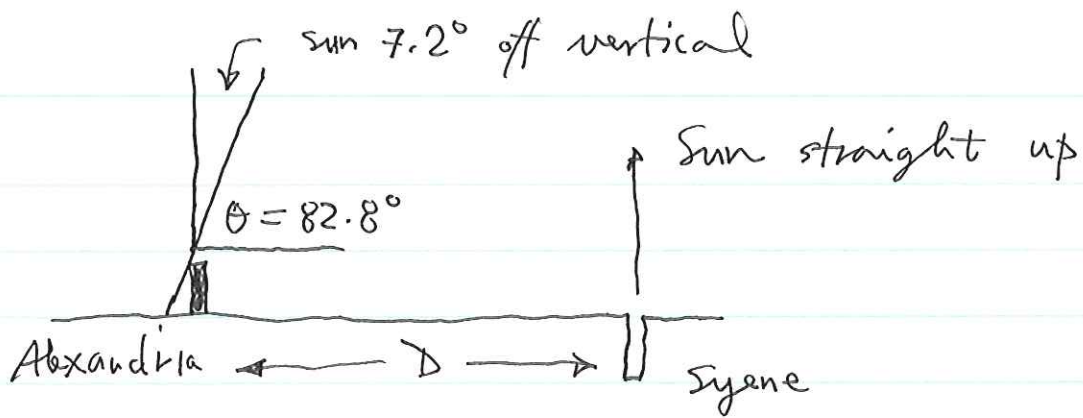 sun 7.2° off vertical
Sun straight up
θ = 82.8°
Alexandria
D
Syene